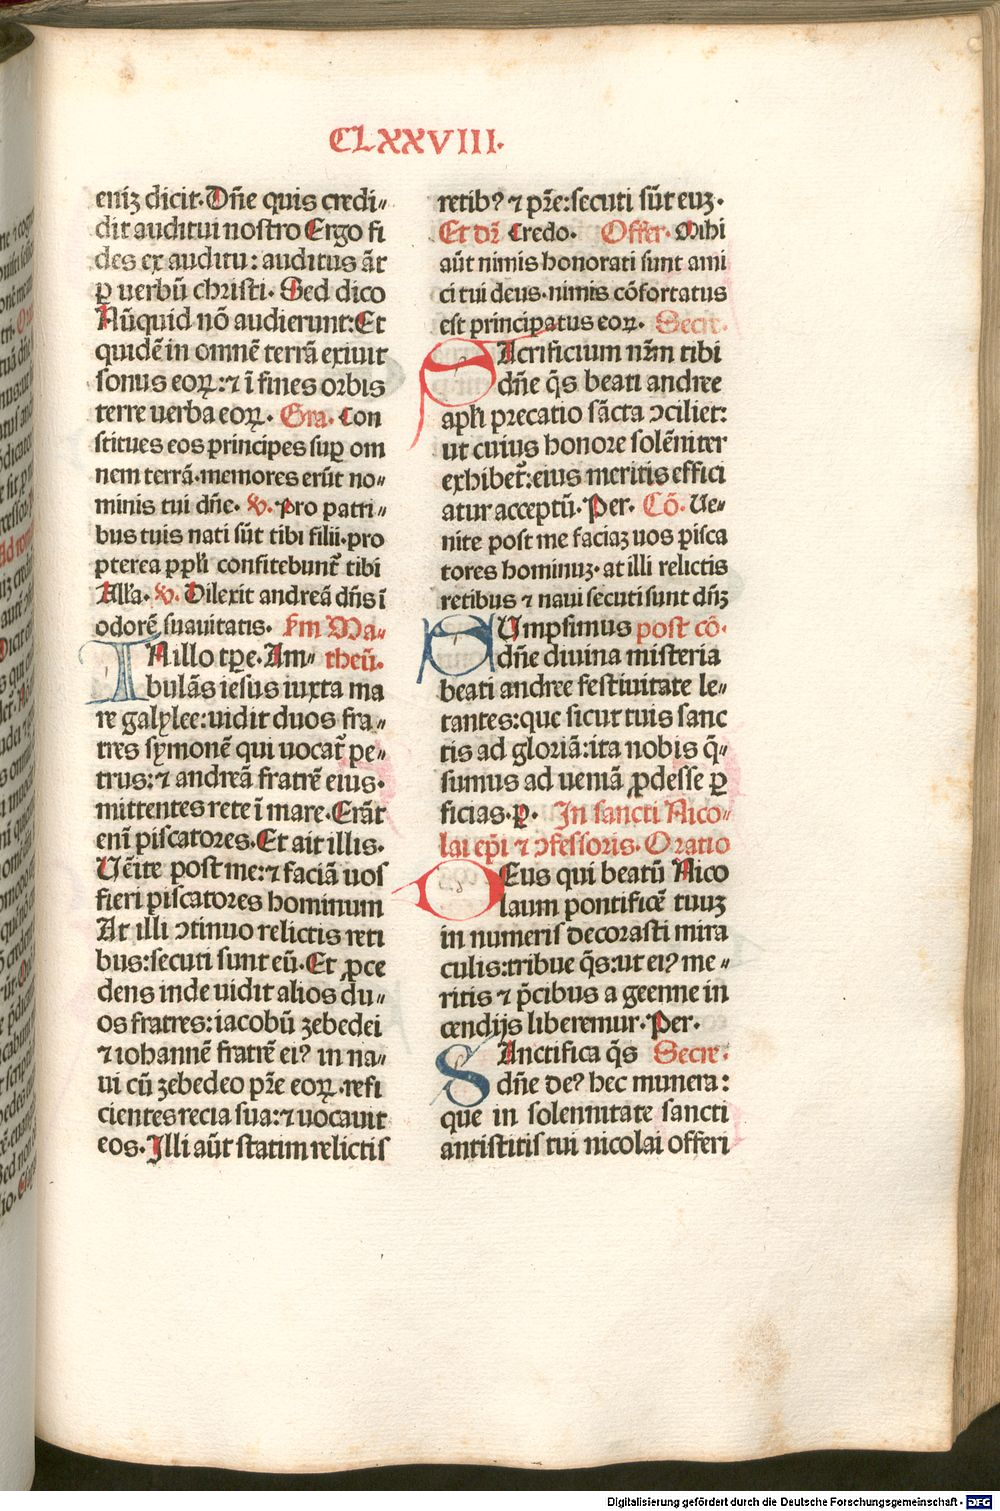 CLXXVIII.
eniꝫ dicit. Dn̄e quis credi„
dit auditui nostro Ergo fi
des ex auditu: auditus āt
ꝑ uerbū christi. Sed dico
Nūquid nō audierunt: Et
quidē in omnē terrā exiuit
sonus eoꝝ: ⁊ ī fines orbis
terre uerba eoꝝ. Gra. Con
stitues eos principes suꝑ om
nem terrā. memores erūt no„
minis tui dn̄e. ℣. Pro patri„
bus tuis nati sūt tibi filii. pro
pterea ppl̄i confitebunt̄ tibi
All'a. ℣. Dilexit andreā dn̄s ī
odorē suauitatis. s̄m Ma„
IN illo tp̄e. Am„ theū.
bulās iesus iuxta ma
re galylee: uidit duos fra„
tres symonē qui uocat̄ pe„
trus: ⁊ andreā fratrē eius.
mittentes rete ī mare. Erāt
enī piscatores. Et ait illis.
Uēite post me: ⁊ faciā uos
fieri piscatores hominum
At illi ↄtinuo relictis reti
bus: secuti sunt eū. Et ꝓce
dens inde uidit alios du„
os fratres: iacobū zebedei
⁊ iohannē fratrē ei? in na„
ui cū zebedeo pr̄e eoꝝ. refi
cientes recia sua: ⁊ uocauit
eos. Illi aūt statim relictis
retib? ⁊ pr̄e: secuti sūt euꝫ.
Et dr̄ Credo. Offer. Mihi
aūt nimis honorati sunt ami
ci tui deus. nimis cōfortatus
est principatus eoꝝ. Secr̄.
SAcrificium nr̄m tibi
dn̄e q̄s beati andree
apl̄i precatio sācta ↄciliet:
ut cuius honore solēniter
exhibet̄: eius meritis effici
atur acceptū. Per. Cō. Ue„
nite post me faciaꝫ uos pisca
tores hominuꝫ. at illi relictis
retibus ⁊ naui secuti sunt dn̄ꝫ
SUmpsimus post cō.
dn̄e diuina misteria
beati andree festiuitate le„
tantes: que sicut tuis sanc
tis ad gloriā: ita nobis q̄„
sumus ad ueniā ꝓdesse ꝑ
ficias. ꝑ. In sancti Nico„
lai ep̄i ⁊ ↄfessoris. Oratio
DEus qui beatū Nico
laum pontificē tuuꝫ
in numeris decorasti mira
culis: tribue q̄s: ut ei? me„
ritis ⁊ p̄cibus a geenne in
cendijs liberemur. Per.
SAnctifica q̄s Secre.
dn̄e de? hec munera:
que in solennitate sancti
antistitis tui nicolai offeri
Digitalisierung gefördert durch die Deutsche Forschungsgemeinschaft - DFG